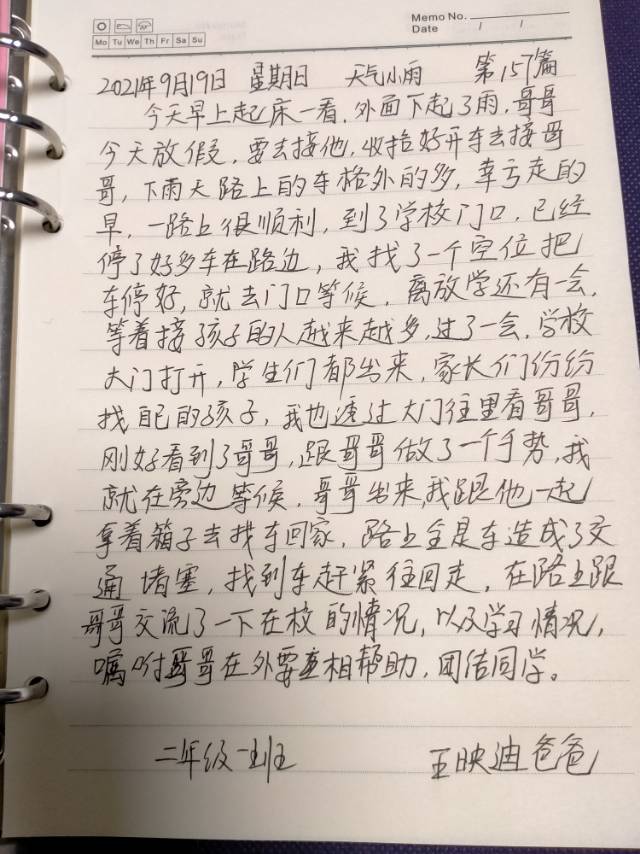 Memo No.
Mo Tu We Th Fr Sa Su
Date / /
2021年9月19日 星期日 天气小雨 第157篇
今天早上起床一看,外面下起了雨,哥哥
今天放假,要去接他,收拾好开车去接哥
哥,下雨天路上的车格外的多,幸亏走的
早,一路上很顺利,到了学校门口,已经
停了好多车在路边,我找了一个空位把
车停好,就去门口等候,离放学还有一会,
等着接孩子的人越来越多,过了一会,学校
大门打开,学生们都出来,家长们纷纷
找自己的孩子,我也透过大门往里看哥哥,
刚好看到了哥哥,跟哥哥做了一个手势,我
就在旁边等候,哥哥出来,我跟他一起
拿着箱子去找车回家,路上全是车造成了交
通堵塞,找到车赶紧往回走,在路上跟
哥哥交流了一下在校的情况,以及学习情况,
嘱咐哥哥在外要互相帮助,团结同学。
二年级一班 王映迪爸爸